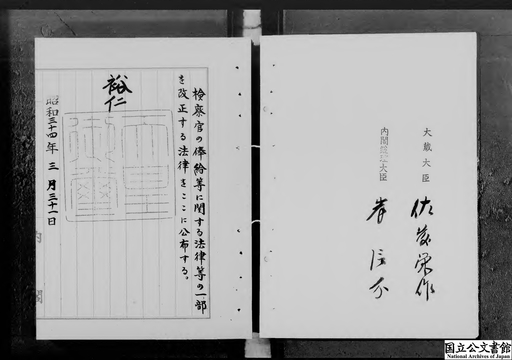 大蔵大臣 佐藤栄作
内閣総理大臣 岸信介
検察官の俸給等に関する法律等の一部
を改正する法律をここに公布する。
裕仁
天皇御璽
昭和三十四年三月三十一日
国立公文書館
National Archives of Japan